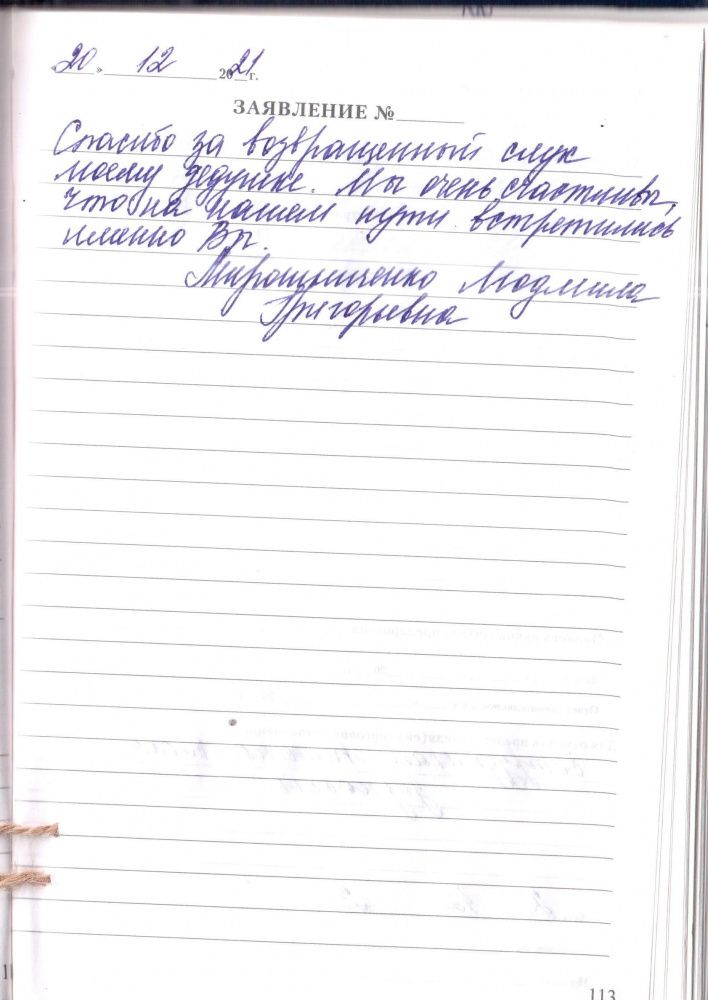 «20» 12 2021г.
ЗАЯВЛЕНИЕ №
Спасибо за возвращенный слух
моему дедушке. Мы очень счастливы,
что на нашем пути встретились
именно Вы.
Мирошниченко Людмила
Григорьевна
113